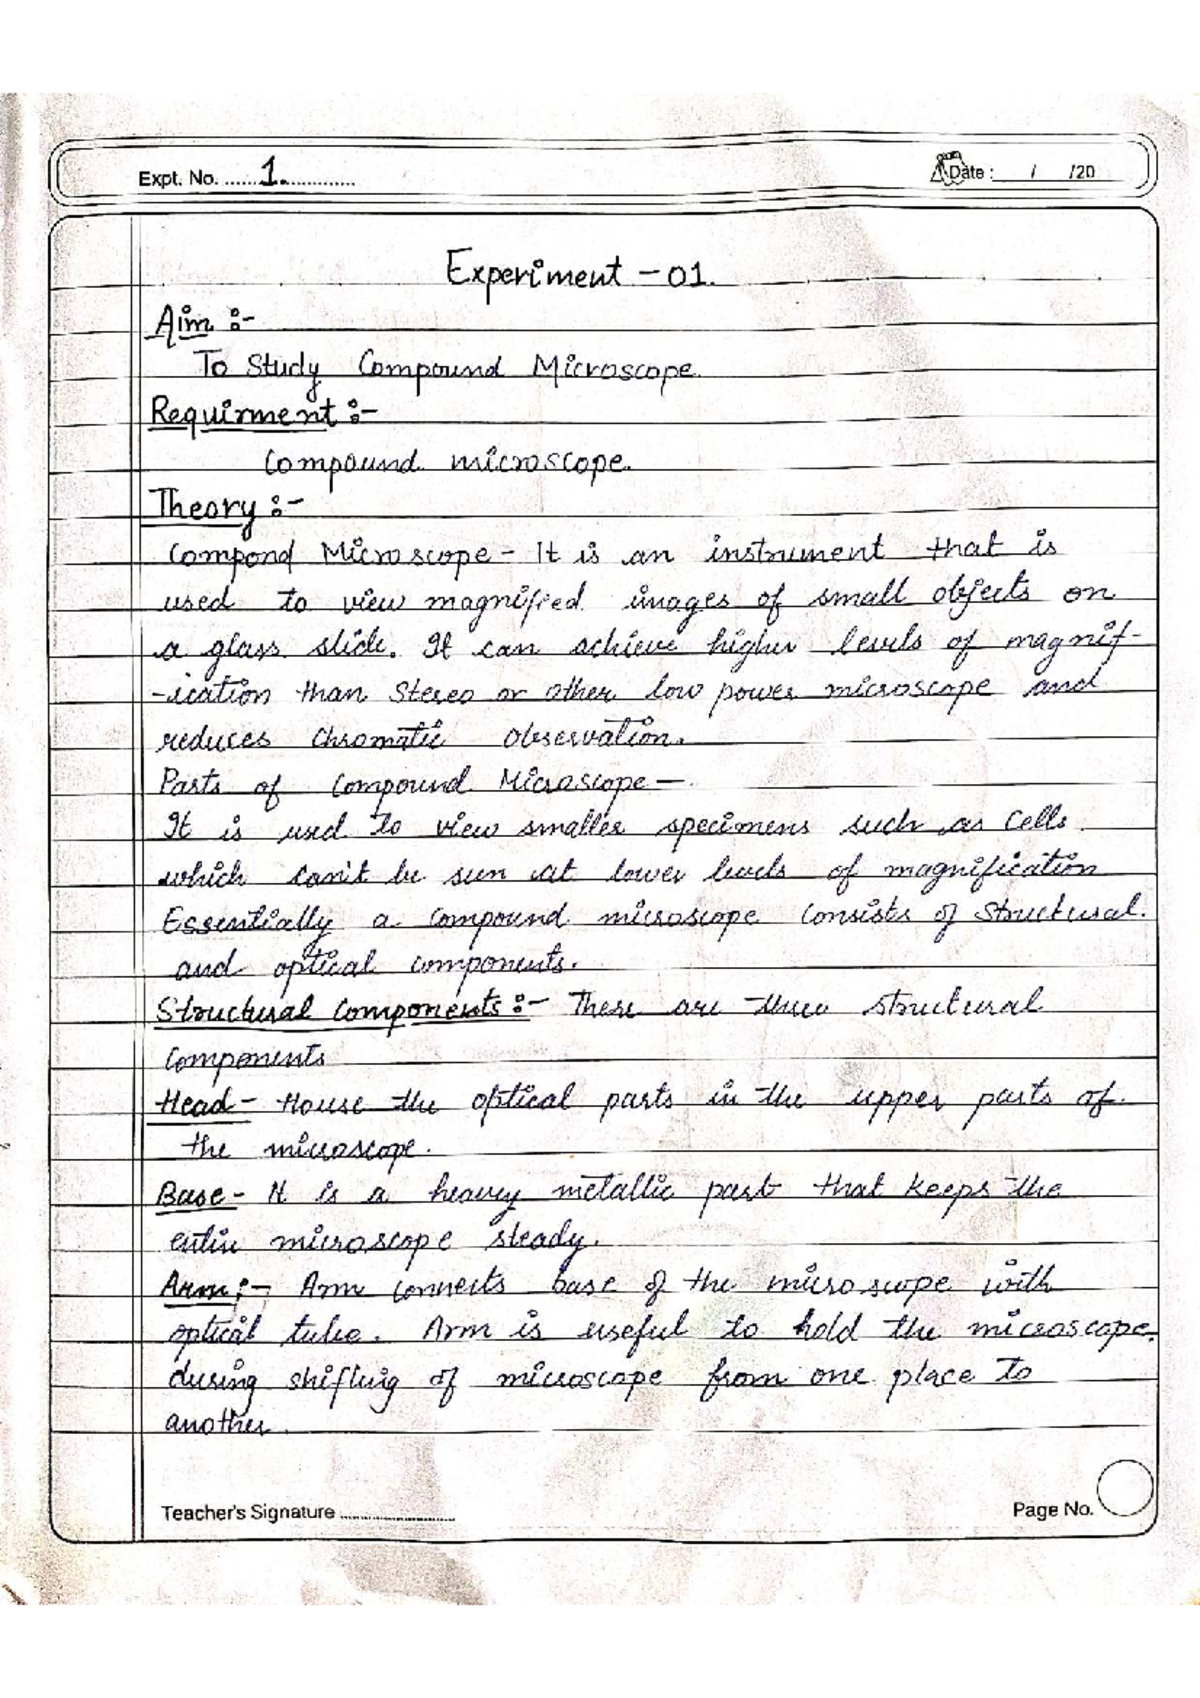 Expt. No. ......1................
Date : / /20
Experiment - 01.
Aim :-
To Study Compound Microscope.
Requirment :-
Compound microscope.
Theory :-
Compond Microscope - It is an instrument that is
used to view magnified images of small objects on
a glass slide. It can achieve higher levels of magnif-
-ication than Stereo or other low power microscope and
reduces Chromatic Observation.
Parts of Compound Microscope —
It is used to view smaller specimens such as Cells
which can't be seen at lower levels of magnification
Essentially a compound microscope Consists of Structural.
and optical components.
Structural Components :- There are three structural
Components
Head - House the optical parts in the upper parts of.
the microscope.
Base - It is a heavy metallic part that keeps the
entire microscope steady.
Arm :- Arm connects base of the microscope with
optical tube. Arm is useful to hold the microscope.
during shifting of microscope from one place to
another.
Teacher's Signature ..........................
Page No.